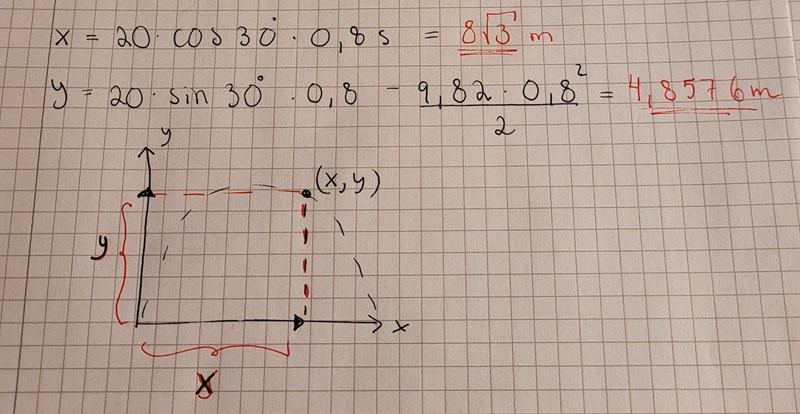 x = 20 · cos 30° · 0,8 s = 8√3 m
y = 20 · sin 30° · 0,8 - 9,82 · 0,8² / 2 = 4,8576 m
y
(x, y)
y
x
x